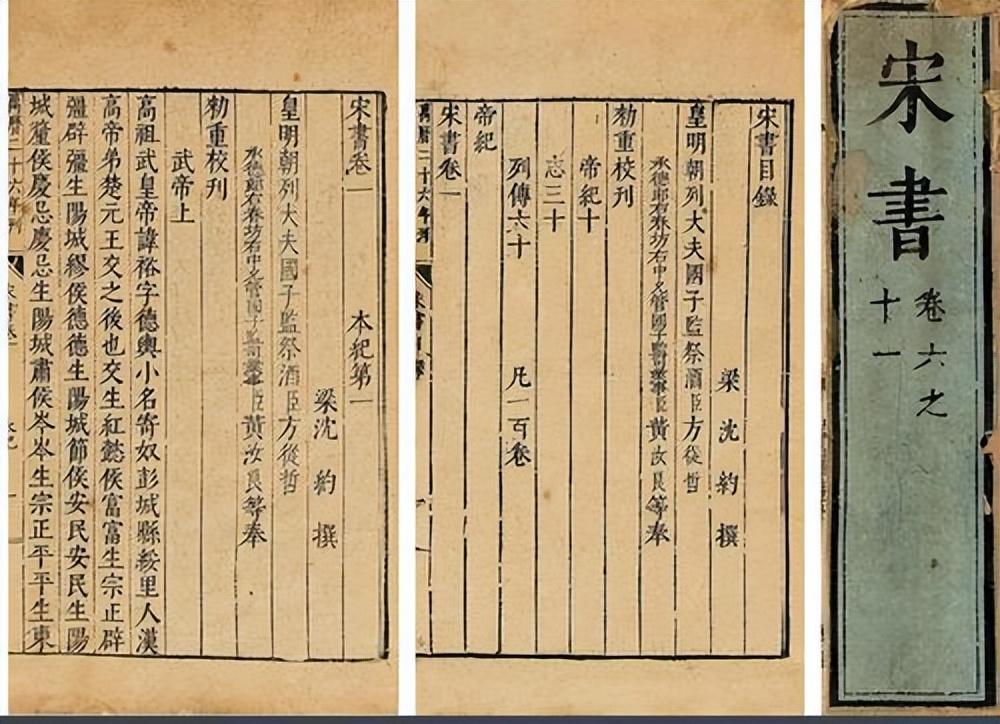 宋書
卷六之
十一
宋書目錄
梁沈約撰
皇明朝列大夫國子監祭酒臣方從哲
承德郎右春坊右中允管國子監司業事臣黃汝良等奉
勅重校刊
帝紀十
志三十
列傳六十 凡一百卷
帝紀
宋書卷一
萬曆二十六年刊
宋書卷一 本紀第一
梁沈約撰
皇明朝列大夫國子監祭酒臣方從哲
承德郎右春坊右中允管國子監司業事臣黃汝良等奉
勅重校刊
武帝上
高祖武皇帝諱裕字德輿小名寄奴彭城縣綏里人漢
高帝弟楚元王交之後也交生紅懿侯富富生宗正辟
彊辟彊生陽城繆侯德德生陽城節侯安民安民生陽
城釐侯慶忌慶忌生陽城肅侯岑岑生宗正平平生東
萬曆二十六年刊